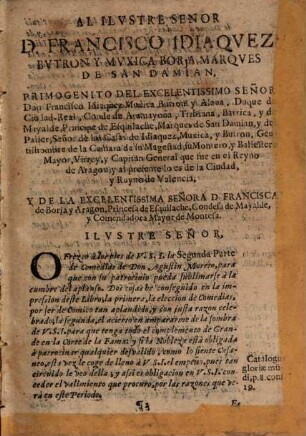 AL ILVSTRE SEÑOR
D. FRANCISCO IDIAQVEZ
BVTRON Y MVXICA BORJA MARQVES
DE SAN DAMIAN,
PRIMOGENITO DEL EXCELENTISSIMO SEÑOR
Don Francisco Idiaquez Muxica Butron y Alava, Duque de
Ciudad-Real, Conde de Aramayona, Tribiana, Barrica, y de
Mayalde, Principe de Esquilache, Marques de San Damian, y de
Señor de las Casas de Idiaquez, Muxica, y Butron, Gen
de la Camara de su Magestad, su Montero, y Ballestero
Mayor, Virrey, y Capitan General que fue en el Reyno
de Aragon, y al presente lo es de la Ciudad,
y Reyno de Valencia,
Y DE LA EXCELENTISSIMA SEÑORA D. FRANCISCA
de Borja y Aragon, Princesa de Esquilache, Condesa de Mayalde,
y Comendadora Mayor de Montesa.
ILVSTRE SEÑOR,
OFrezco à los pies de V.S.I. la Segunda Parte
de Comedias de Don Agustin Moreto, para
que con su patrocinio pueda sublimarse à la
cumbre del aplauso. Dos cosas he conseguido en la
impression deste Libro, la primera, la eleccion de Comedias,
por ser de Comico tan aplaudido, y con justa razon celebrado,
la segunda, el acierto en ampararme de la sombra
de V.S.I. para que tenga todo el cumplimiento de Grande
en la Corte de la Fama: y si la Nobleza està obligada
à patrocinar qualquier desvalido, como lo siente Casaneo,
esta vez le cope de lleno à V.S.I. el empeño, pues tan
circuido le veo della: y assi es obligacion en V.S.I. conceder
el valimiento que procuro, por las razones que verà
en este Periodo.
Catalog.
gloriæ mundi,
p. 8. cons.
19.
¶3
Es